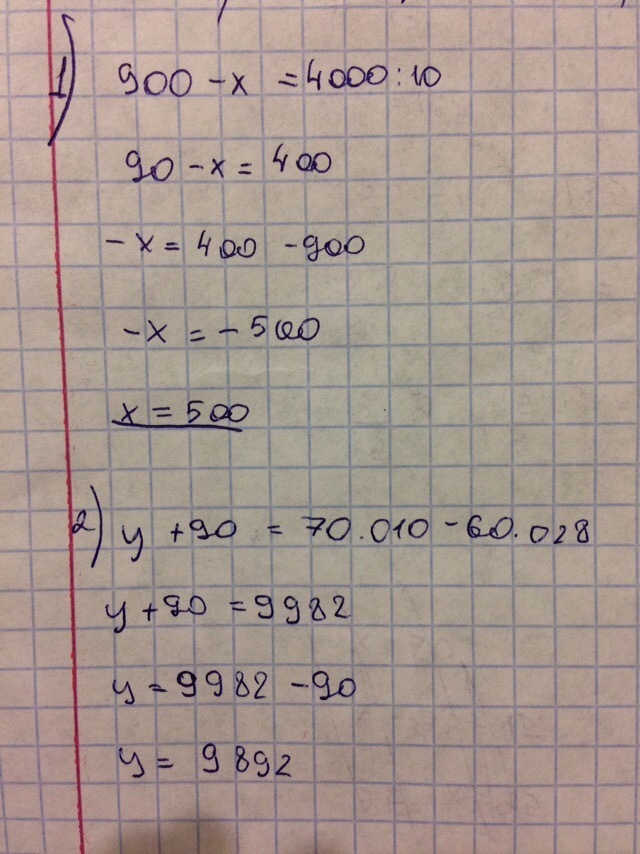 1) 900 - x = 4000 : 10
90 - x = 400
- x = 400 - 900
- x = - 500
x = 500
2) y + 90 = 70.010 - 60.028
y + 90 = 9982
y = 9982 - 90
y = 9892